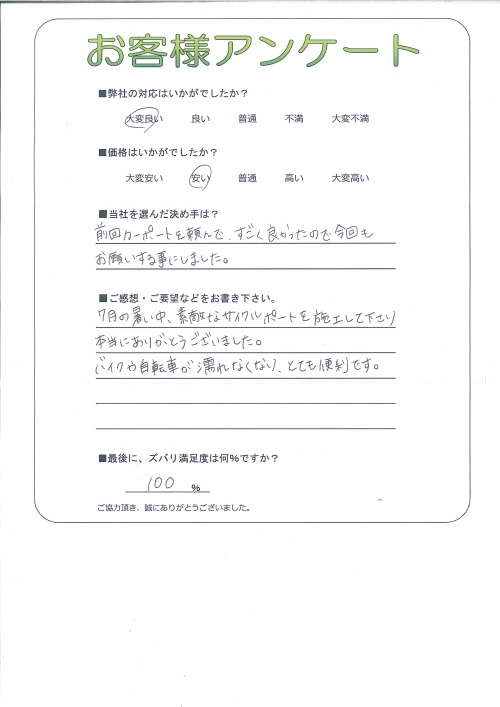 お客様アンケート
■弊社の対応はいかがでしたか？
大変良い 良い 普通 不満 大変不満
■価格はいかがでしたか？
大変安い 安い 普通 高い 大変高い
■当社を選んだ決め手は？
前回カーポートを頼んで、すごく良かったので今回も
お願いする事にしました。
■ご感想・ご要望などをお書き下さい。
7月の暑い中、素敵なサイクルポートを施工して下さり
本当にありがとうございました。
バイクや自転車が濡れなくなり、とても便利です。
■最後に、ズバリ満足度は何%ですか？
100 %
ご協力頂き、誠にありがとうございました。